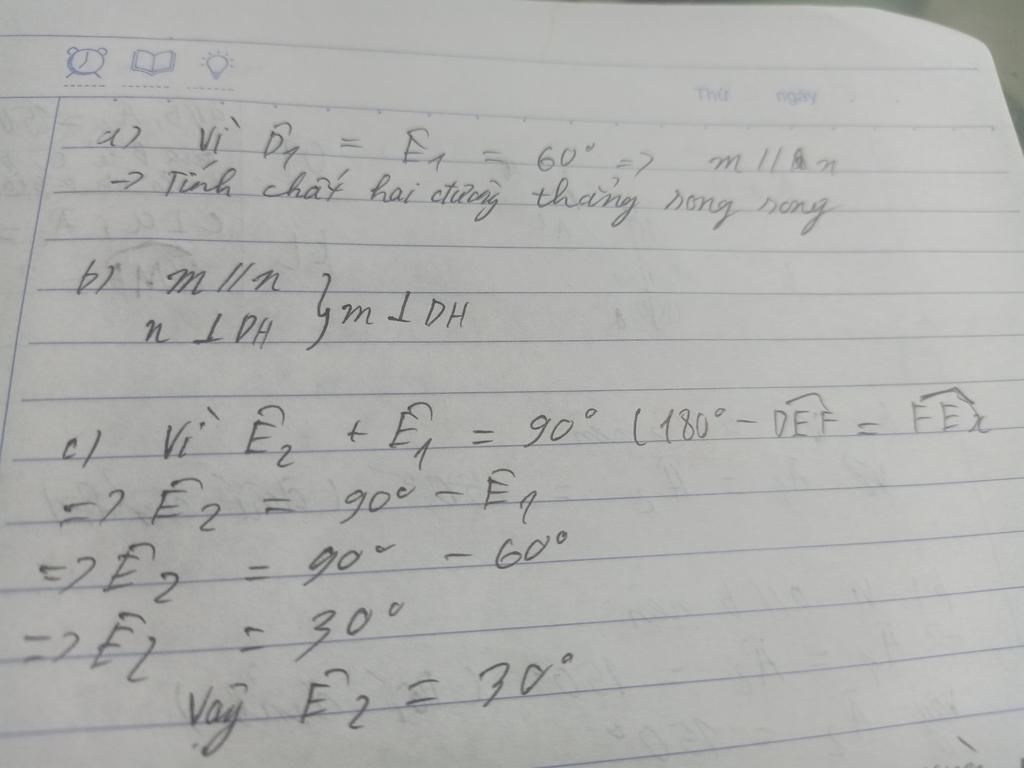 Thứ ngày
a) Vì D̂₁ = Ê₁ = 60° => m // n
-> Tính chất hai đường thẳng song song
b) m // n
n ⊥ DH } m ⊥ DH
c) Vì Ê₂ + Ê₁ = 90° (180° - DEF̂ = FEx̂
=> Ê₂ = 90° - Ê₁
=> Ê₂ = 90° - 60°
=> Ê₂ = 30°
Vậy Ê₂ = 30°